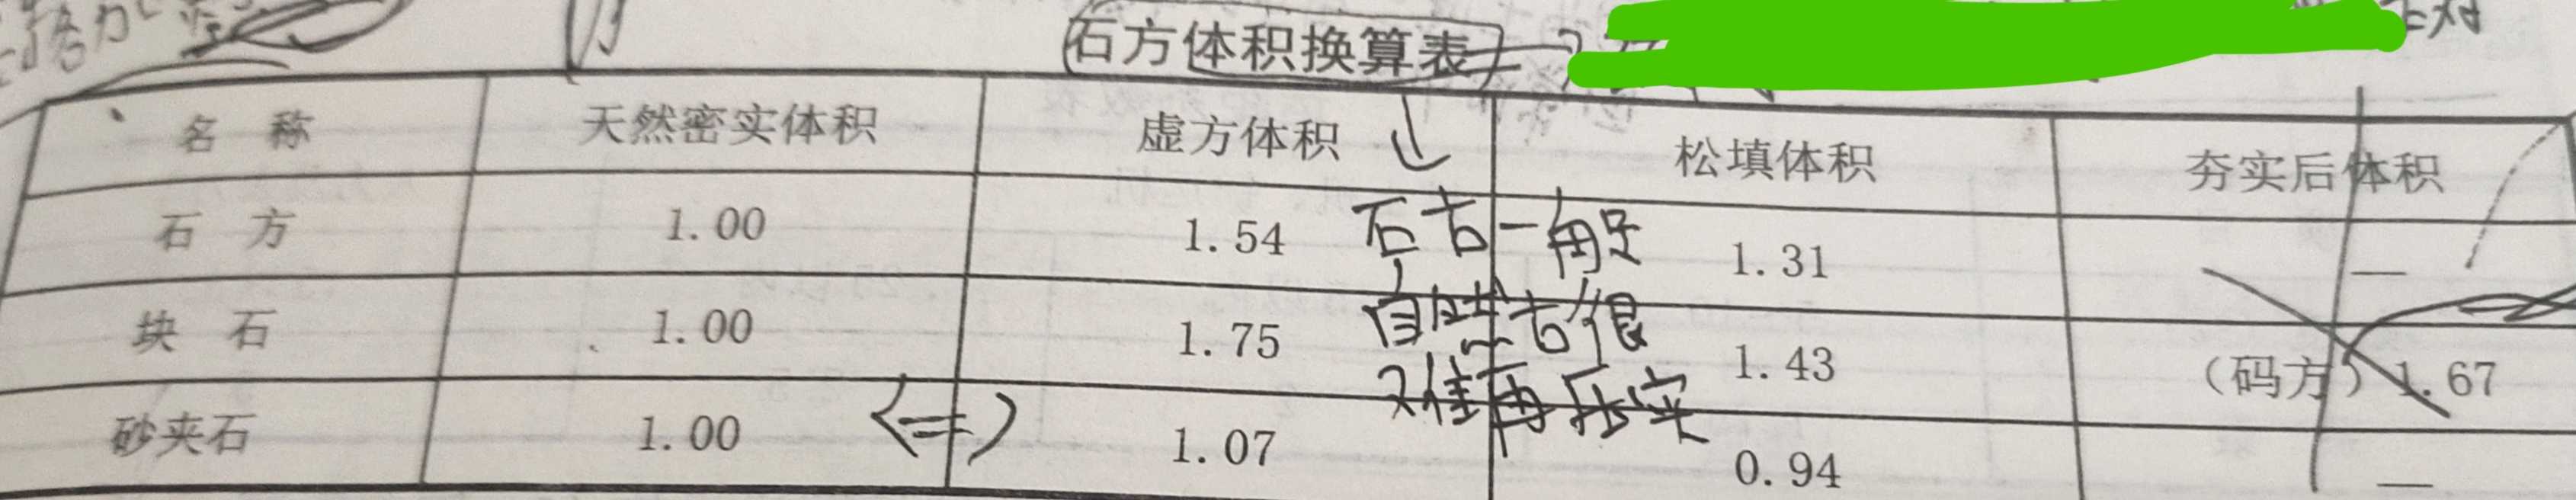 石方体积换算表
名 称 天然密实体积 虚方体积 松填体积 夯实后体积
石 方 1.00 1.54 1.31 —
块 石 1.00 1.75 1.43 （码方）1.67
砂夹石 1.00 1.07 0.94 —
石古一般
自然古很
难再压实